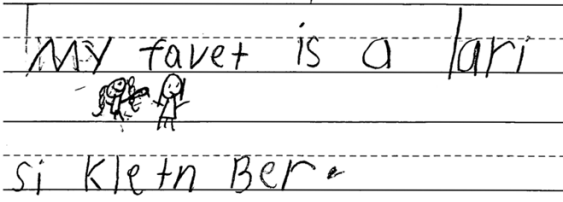 My favet is a lari
si kletn Ber.